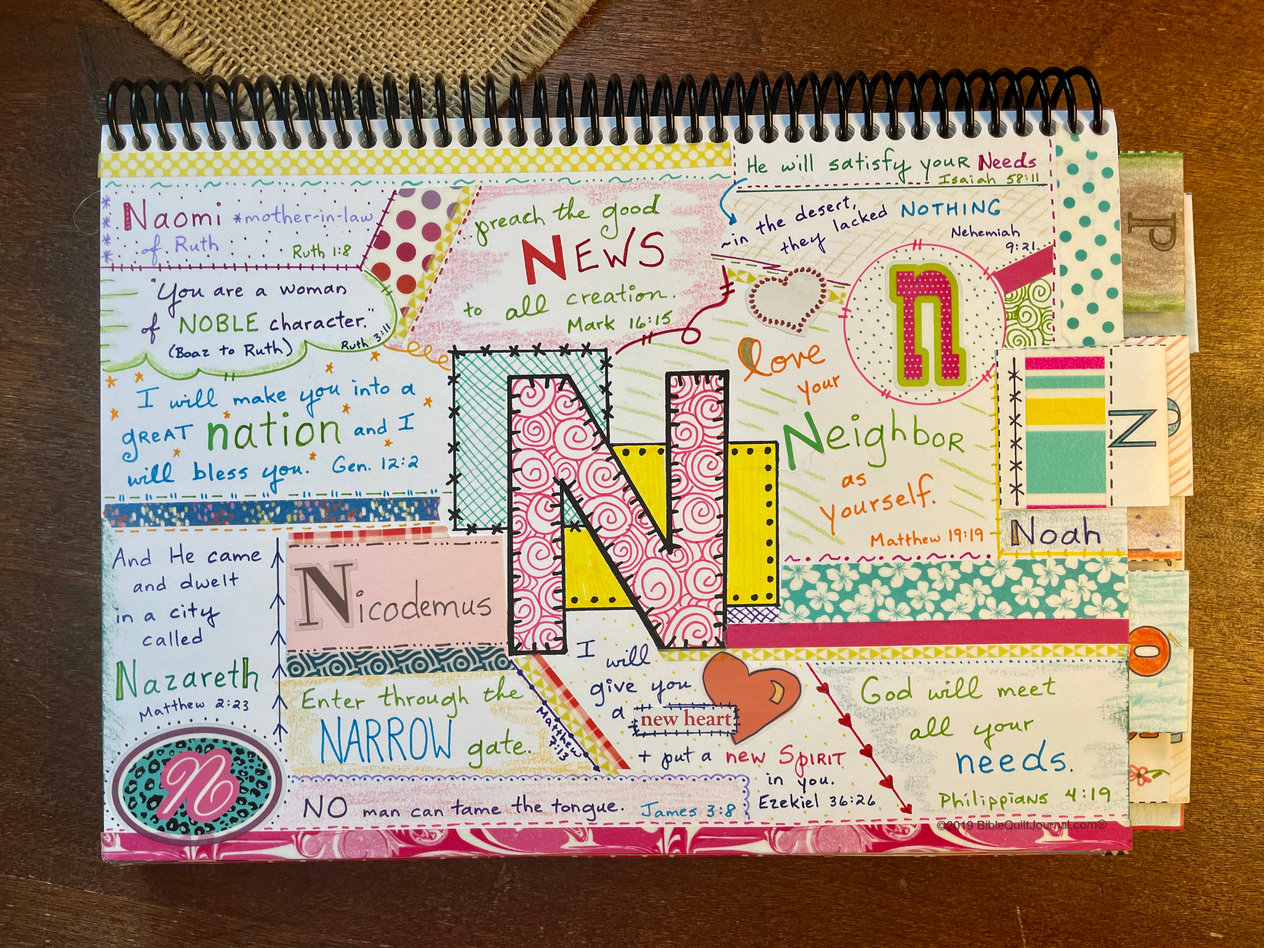 Naomi *mother-in-law
of Ruth
Ruth 1:8
"You are a woman
of NOBLE character."
(Boaz to Ruth)
Ruth 3:11
I will make you into a
great nation and I
will bless you. Gen. 12:2
And He came
and dwelt
in a city
called
Nazareth
Matthew 2:23
N
preach the good
NEWS
to all creation.
Mark 16:15
He will satisfy your Needs
Isaiah 58:11
~in the desert,
they lacked NOTHING
Nehemiah
9:21
n
love
your
Neighbor
as
yourself.
Matthew 19:19
N
Nicodemus
Enter through the
NARROW gate.
Matthew
7:13
NO man can tame the tongue. James 3:8
I will
give you
a new heart
+ put a new Spirit
in you.
Ezekiel 36:26
God will meet
all your
needs.
Philippians 4:19
©2019 BibleQuiltJournal.com®
Noah
N
P
O
O